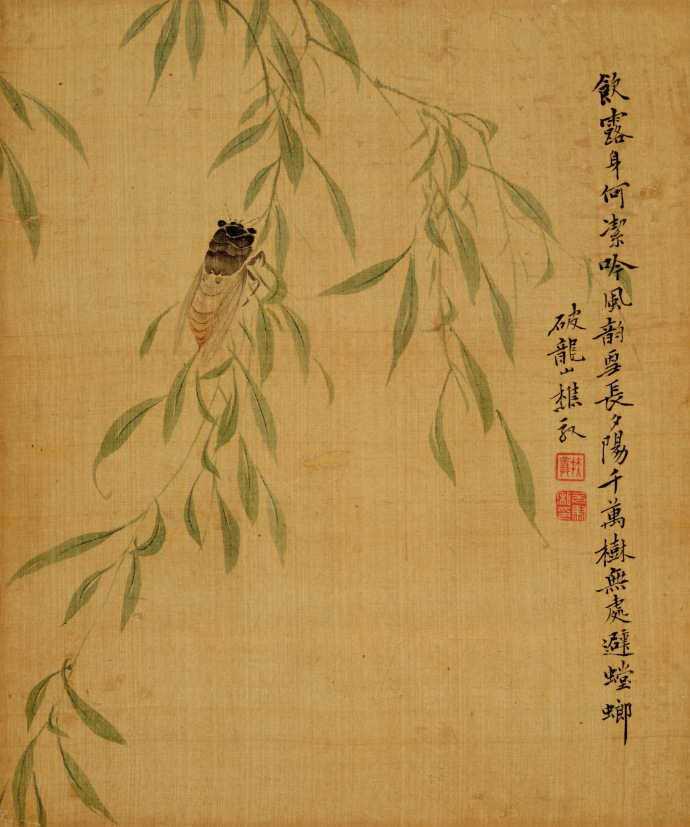 飲露身何潔吟風韵更長夕陽千萬樹無處避螳螂
破龍山樵